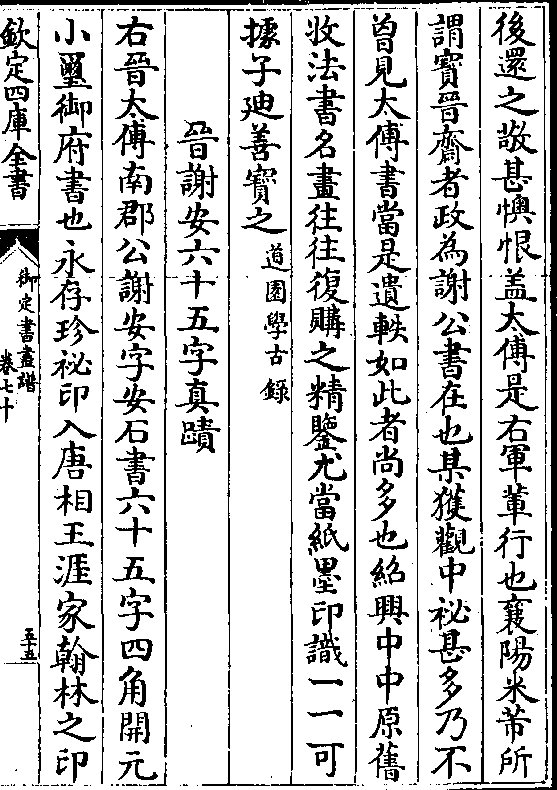 後還之敬甚懊恨盖太傅是右軍軰行也襄陽米芾所
謂寳晉齋者政為謝公書在也某獲觀中祕甚多乃不
曽見太傅書當是遺軼如此者尚多也紹興中中原舊
收法書名畫往往復購之精鑒尤當紙墨印識一一可
據子廸善寳之道園學古錄
晉謝安六十五字真蹟
右晉太傅南郡公謝安字安石書六十五字四角開元
小璽御府書也永存珍祕印入唐相王涯家翰林之印
欽定四庫全書
御定書畫譜
卷七十
五十五